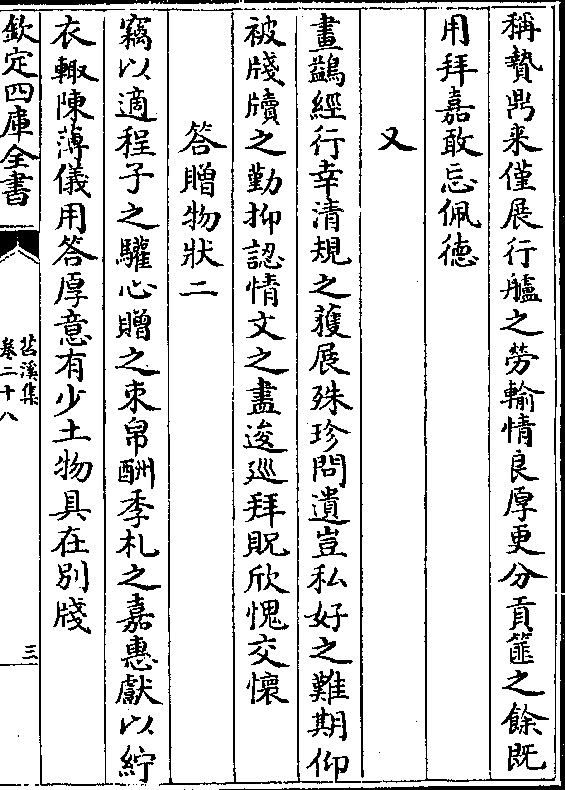 稱贄鼎来僅展行艫之勞輸情良厚更分貢篚之餘既
用拜嘉敢忘佩德
又
畫鷁經行幸清規之獲展殊珍問遺豈私好之難期仰
被牋牘之勤抑認情文之盡逡巡拜貺欣愧交懷
答贈物狀二
竊以適程子之驩心贈之束帛酬季札之嘉惠獻以紵
衣輙陳薄儀用答厚意有少土物具在別牋
欽定四庫全書
苕溪集
卷二十八
三